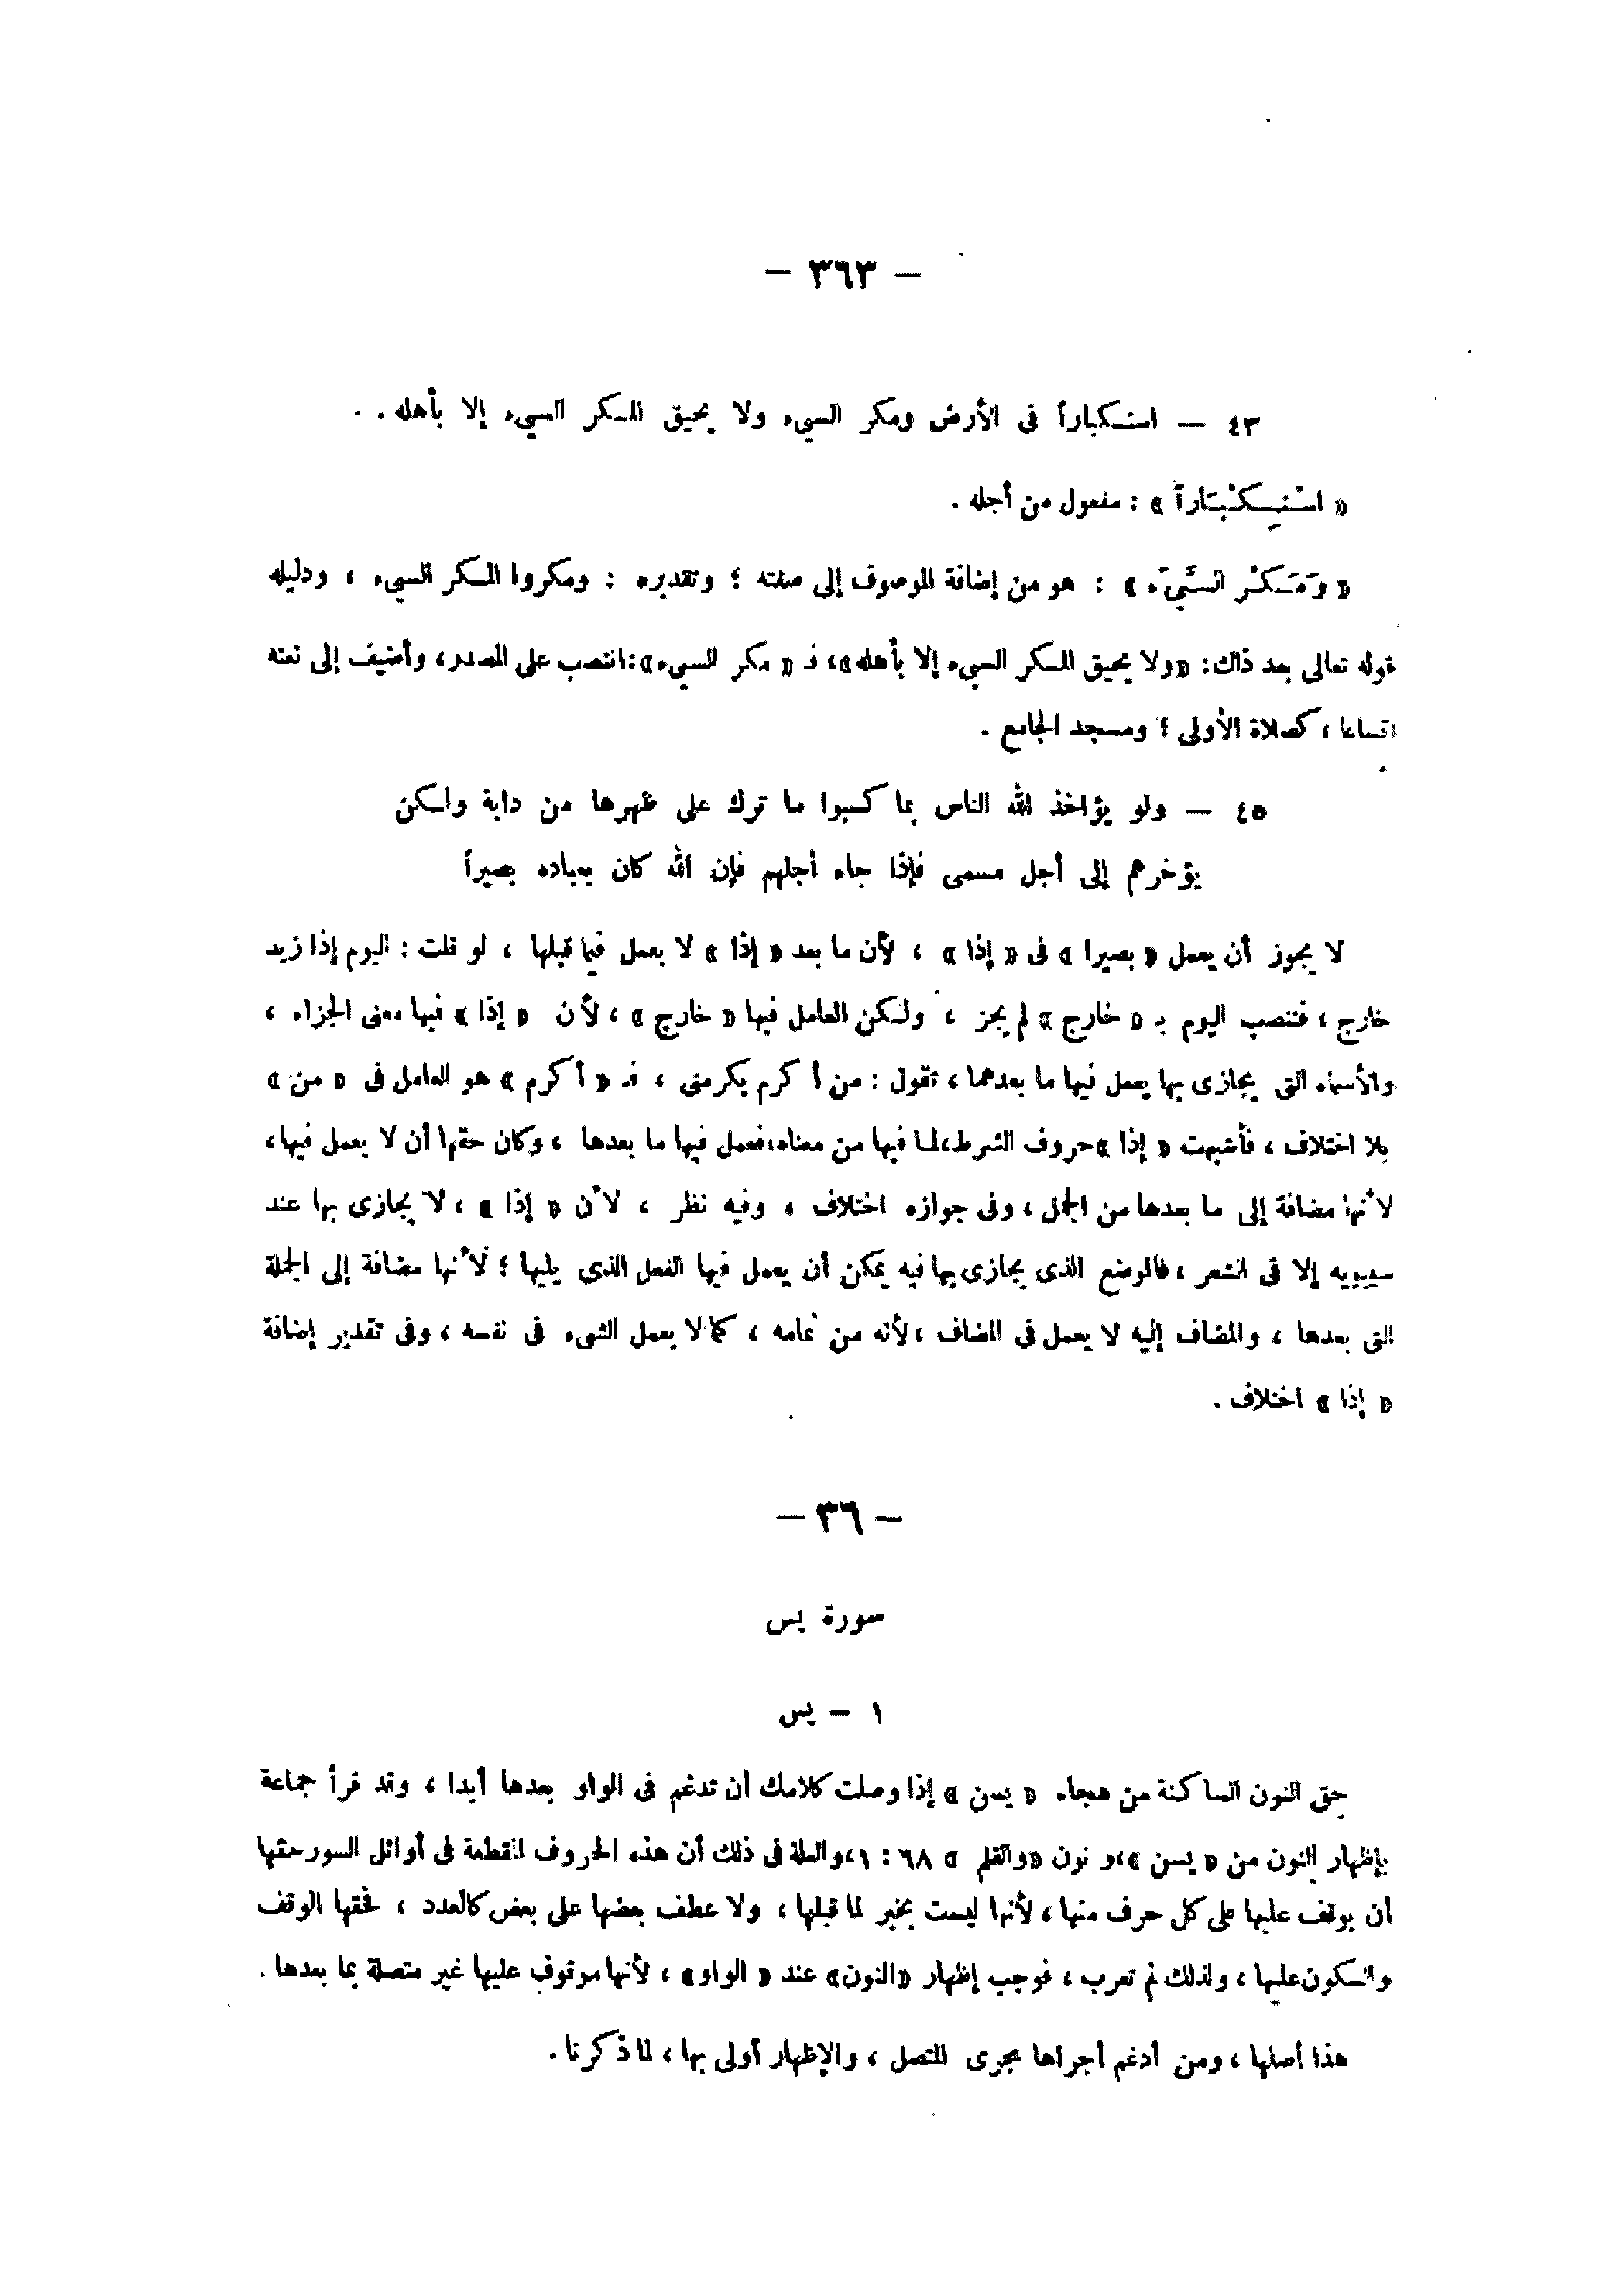 — ٣٦٣ —
٤٣ — استكباراً فى الأرض ومكر السيىء ولا يحيق المكر السيىء إلا بأهله . .
« اسْتِكْبَاراً » : مفعول من أجله .
« وَمَكْرَ السَّيِّىء » : هو من إضافة الموصوف إلى صفته ؛ وتقديره : ومكروا المكر السيىء ، ودليله
قوله تعالى بعد ذلك: «ولا يحيق المكر السيىء إلا بأهله»، فـ « مكر السيىء»:انتصب على المصدر، وأضيف إلى نعته
اتساعا ، كصلاة الأولى ؛ ومسجد الجامع .
٤٥ — ولو يؤاخذ الله الناس بما كسبوا ما ترك على ظهرها من دابة ولكن
يؤخرهم إلى أجل مسمى فإذا جاء أجلهم فإن الله كان بعباده بصيراً
لا يجوز أن يعمل « بصيرا » فى « إذا » ، لأن ما بعد « إذا » لا يعمل فيما قبلها ، لو قلت : اليوم إذا زيد
خارج ، فتنصب اليوم بـ « خارج » لم يجز ، ولكن العامل فيها « خارج » ، لأن « إذا » فيها معنى الجزاء ،
والأسماء التى يجازى بها يعمل فيها ما بعدهما ، تقول : من أكرم يكرمنى ، فـ « أكرم » هو العامل فى « من »
بلا اختلاف ، فأشبهت « إذا »حروف الشرط،لما فيها من معناه،فعمل فيها ما بعدها ، وكان حقها أن لا يعمل فيها،
لأنها مضافة إلى ما بعدها من الجمل ، وفى جوازه اختلاف ، وفيه نظر ، لأن « إذا » ، لا يجازى بها عند
سيبويه إلا فى الشعر ، فالموضع الذى يجازى بها فيه يمكن أن يعمل فيها الفعل الذى يليها ؛ لأنها مضافة إلى الجملة
التى بعدها ، والمضاف إليه لا يعمل فى المضاف ، لأنه من تمامه ، كما لا يعمل الشىء فى نفسه ، وفى تقدير إضافة
« إذا » اختلاف .
— ٣٦ —
سورة يس
١ — يس
حق النون الساكنة من هجاء « يسن » إذا وصلت كلامك أن تدغم فى الواو بعدها أبدا ، وقد قرأ جماعة
بإظهار النون من « يسن »،و نون «والقلم » ٦٨ : ١،والعلة فى ذلك أن هذه الحروف المقطعة فى أوائل السور حقها
أن يوقف عليها على كل حرف منها ، لأنها ليست بخبر لما قبلها ، ولا عطف بعضها على بعض كالعدد ، فحقها الوقف
والسكون عليها ، ولذلك لم تعرب ، فوجب إظهار «النون» عند « الواو» ، لأنها موقوف عليها غير متصلة بما بعدها .
هذا أصلها ، ومن أدغم أجراها مجرى المتصل ، والإظهار أولى بها ، لما ذكرنا .